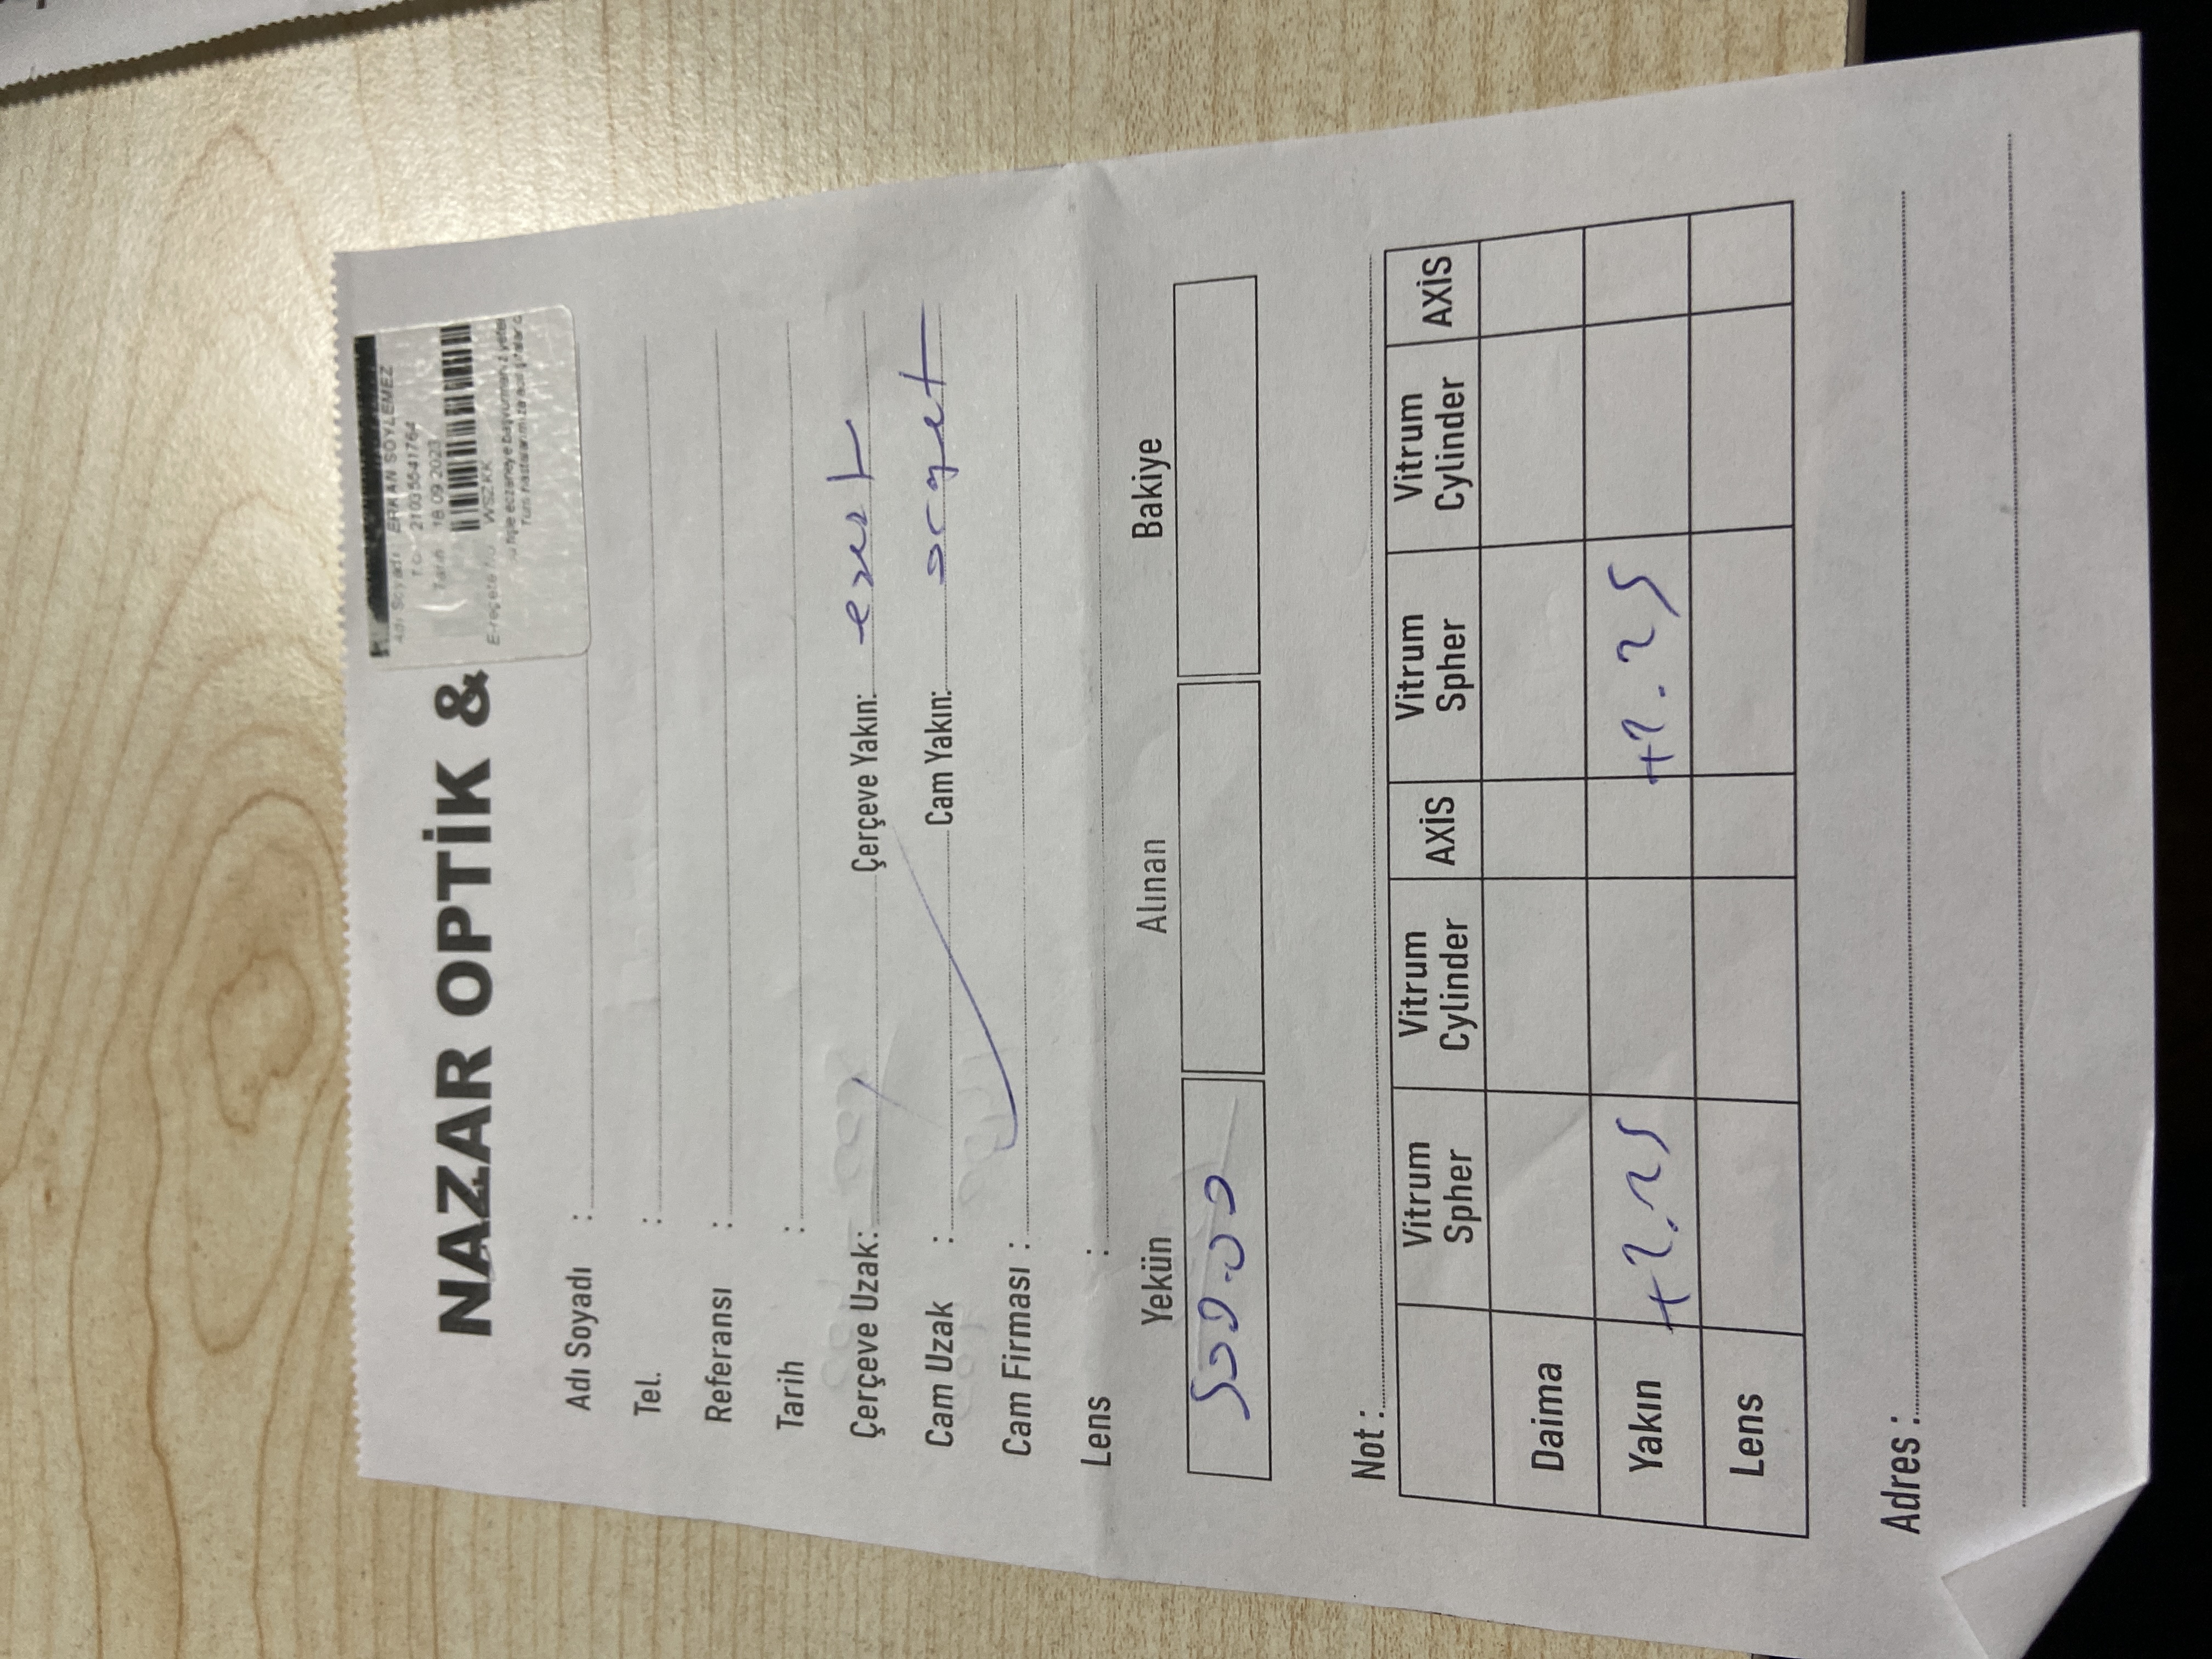 NAZAR OPTİK &
Adı Soyadı : ERKAN SÖYLEMEZ
T.C. 21035541764
Tarih 18.09.2023
E-reçete No WSZKK
fişle eczaneye başvurmanız yeter
Tüm hastalarımıza acil şifalar d
Adı Soyadı :
Tel. :
Referansı :
Tarih :
Çerçeve Uzak: Çerçeve Yakın:
Cam Uzak : Cam Yakın:
Cam Firması :
Lens :
Yekün Alınan Bakiye
500.00
Not :
Vitrum Spher Vitrum Cylinder AXİS Vitrum Spher Vitrum Cylinder AXİS
Daima
Yakın +2.25 +2.25
Lens
Adres :